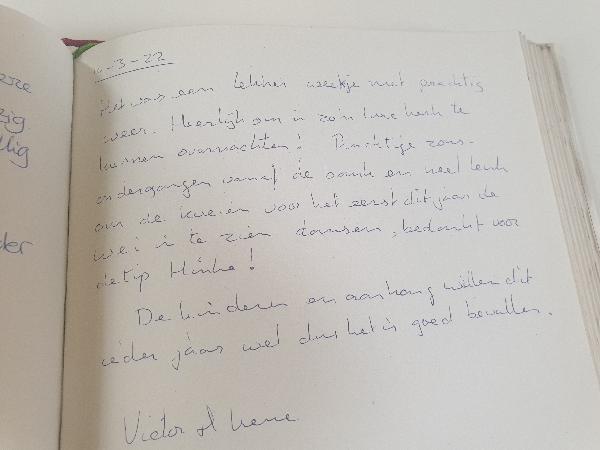 -3-22
Het was een lekker weekje met prachtig
weer. Heerlijk om in zo'n luxe kerk te
kunnen overnachten! Prachtige zons-
ondergangen vanaf de bank en heel leuk
om de koeien voor het eerst dit jaar de
wei in te zien dansen, bedankt voor
de tip Hinke!
De kinderen en aanhang willen dit
ieder jaar wel dus het is goed bevallen.
Victor
ere
zig
llig
der